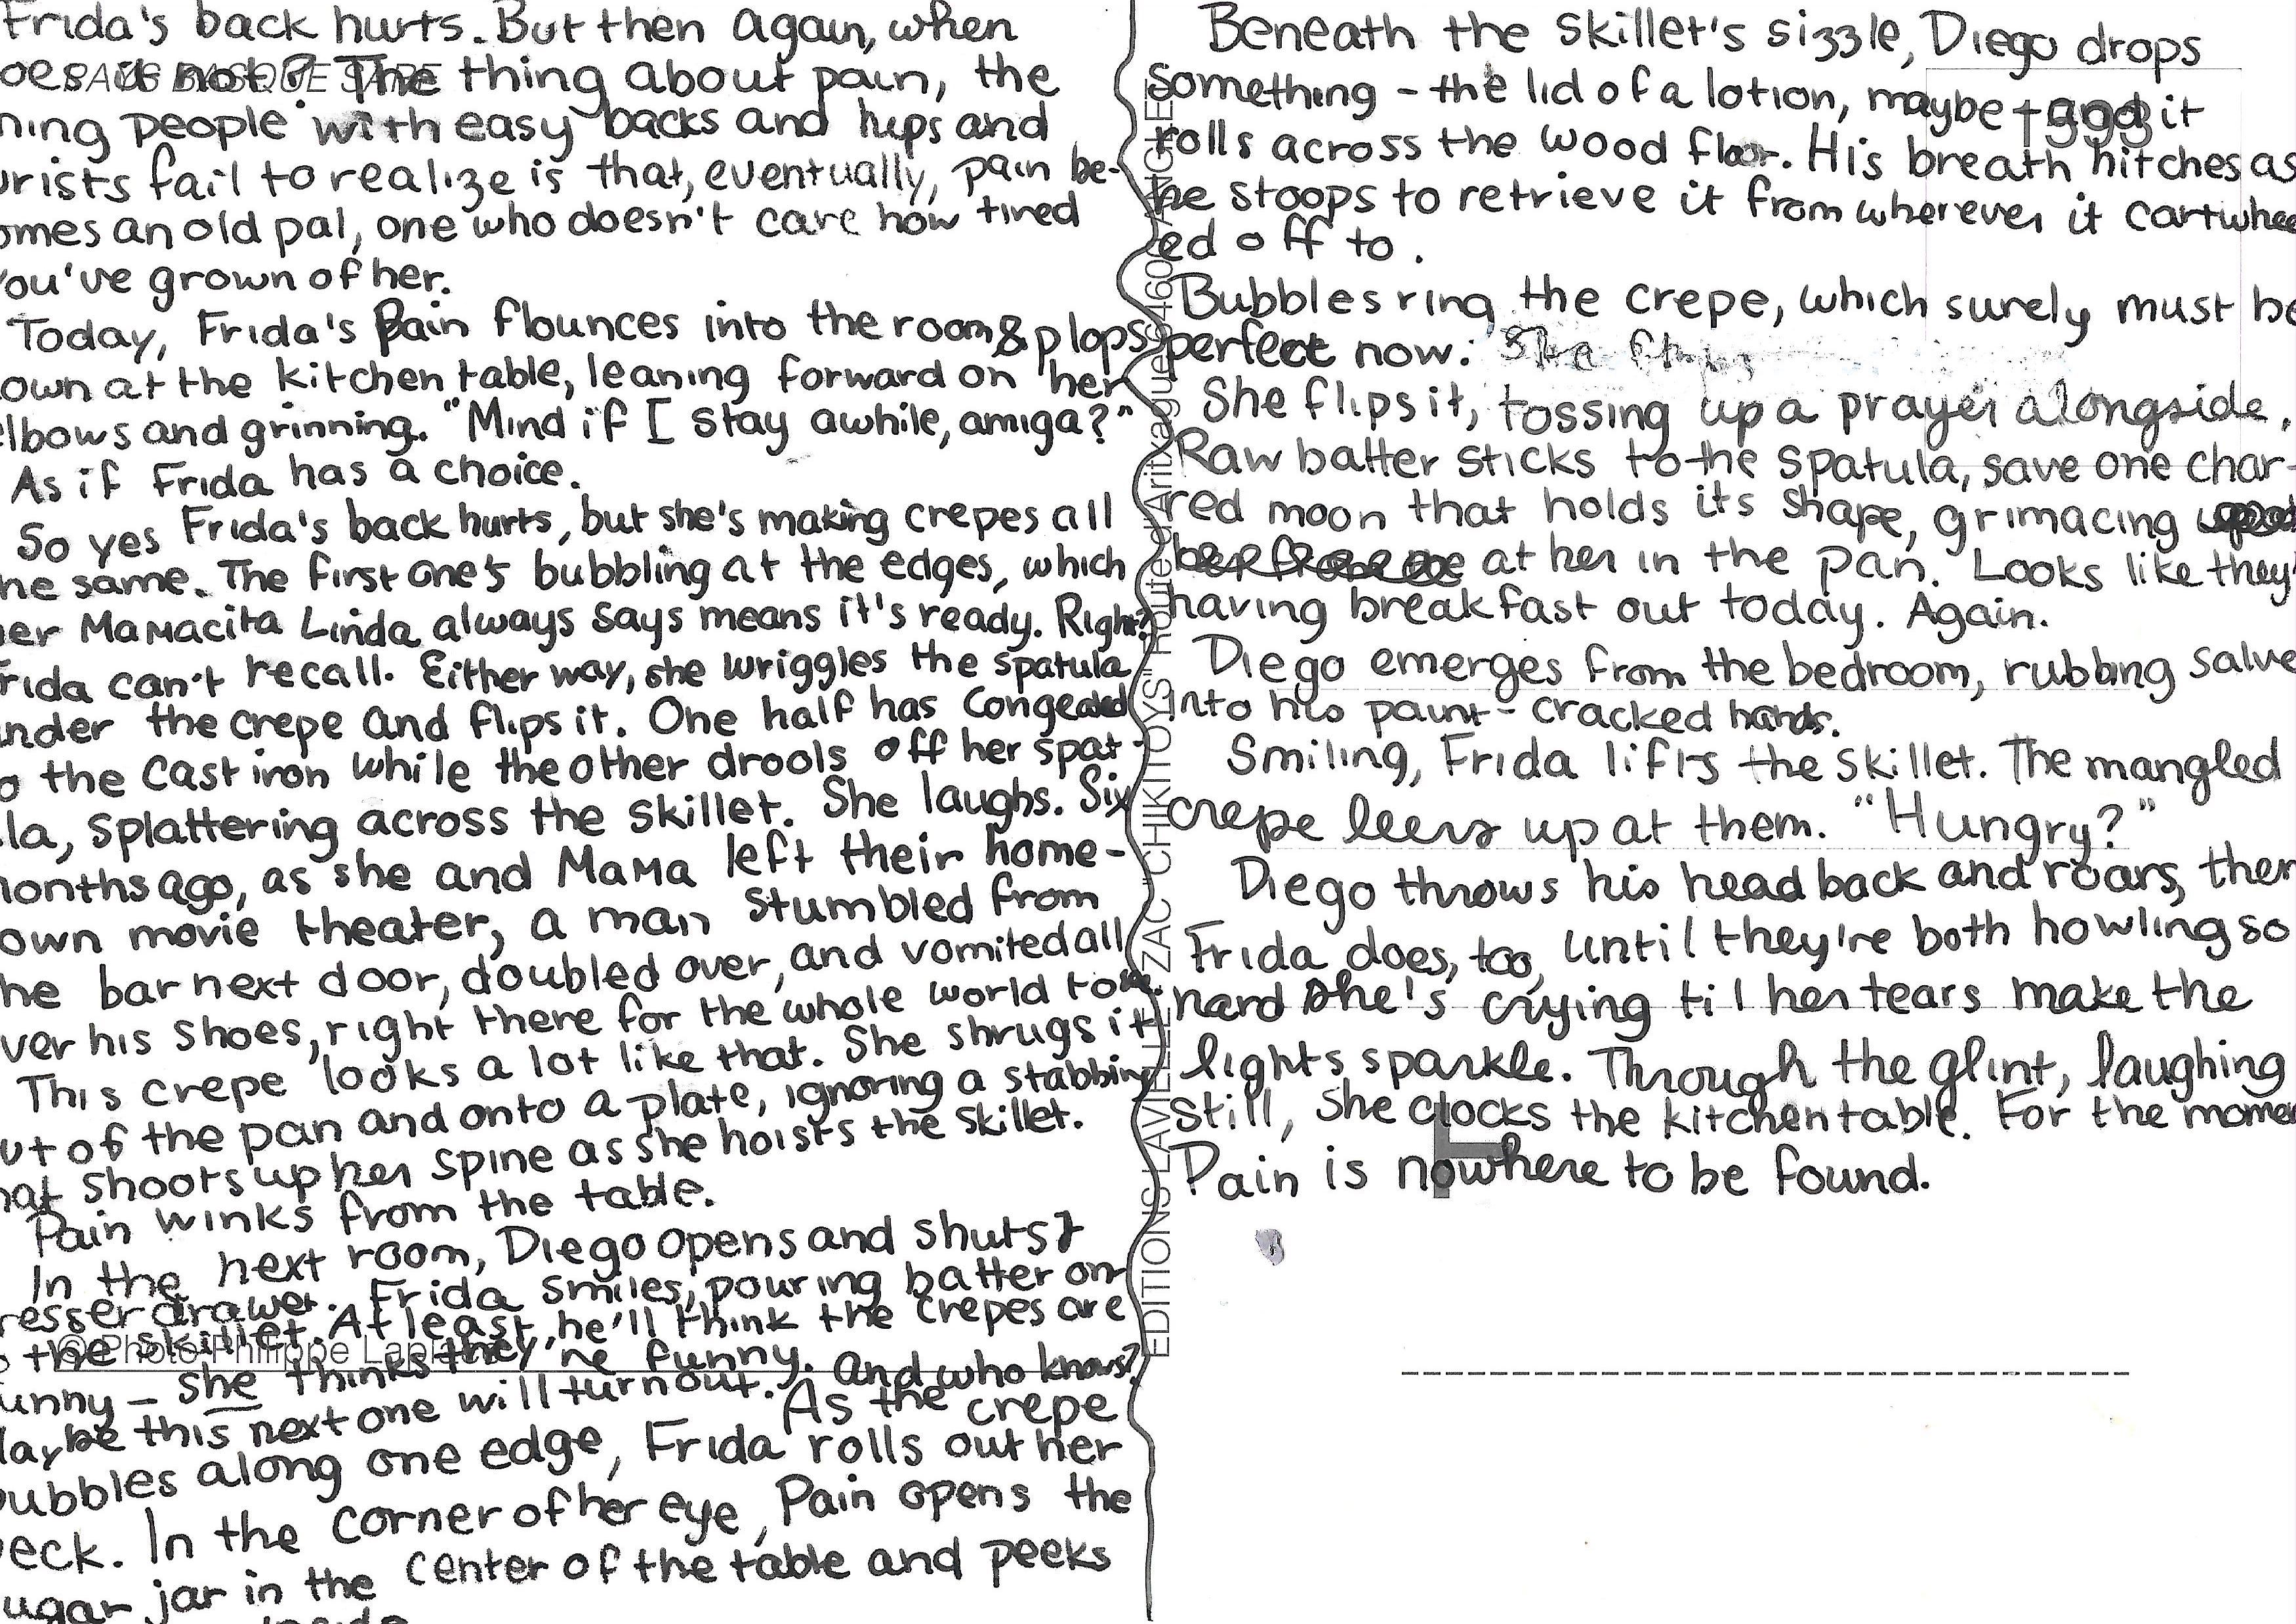 Frida's back hurts. But then again, when
oes it not? The thing about pain, the
ning people with easy backs and hips and
urists fail to realize is that, eventually, pain be-
omes an old pal, one who doesn't care how tired
you've grown of her.
Today, Frida's Pain flounces into the room & plops
own at the kitchen table, leaning forward on her
elbows and grinning. "Mind if I stay awhile, amiga?"
As if Frida has a choice.
So yes Frida's back hurts, but she's making crepes all
he same. The first one's bubbling at the edges, which
her Mamacita Linda always says means it's ready. Right?
Frida can't recall. Either way, she wriggles the spatula
under the crepe and flips it. One half has congealed
o the cast iron while the other drools off her spat-
la, splattering across the skillet. She laughs. Six
months ago, as she and Mama left their home-
own movie theater, a man stumbled from
he bar next door, doubled over, and vomited all
ver his shoes, right there for the whole world to
This crepe looks a lot like that. She shrugs it
ut of the pan and onto a plate, ignoring a stabbing
hat shoots up her spine as she hoists the skillet.
Pain winks from the table.
In the next room, Diego opens and shuts
resser drawer. Frida smiles, pouring batter on-
o the skillet. At least he'll think the crepes are
unny – she thinks they're funny. And who knows?
Maybe this next one will turn out. As the crepe
bubbles along one edge, Frida rolls out her
neck. In the corner of her eye, Pain opens the
ugar jar in the center of the table and peeks
inside
PAYS BASQUE
© Photo Philippe
EDITIONS LAVIELLE ZAC "CHIKITOYS" Route d'Aritxague 64600 ANGLET
Beneath the skillet's sizzle, Diego drops
something – the lid of a lotion, maybe – and it
rolls across the wood floor. His breath hitches as
he stoops to retrieve it from wherever it cartwheel
ed off to.
Bubbles ring the crepe, which surely must be
perfect now. She flips
She flips it, tossing up a prayer alongside.
Raw batter sticks to the spatula, save one char-
red moon that holds its shape, grimacing
at her in the pan. Looks like they'
having breakfast out today. Again.
Diego emerges from the bedroom, rubbing salve
into his paint-cracked hands.
Smiling, Frida lifts the skillet. The mangled
crepe leers up at them. "Hungry?"
Diego throws his head back and roars, then
Frida does, too, until they're both howling so
hard she's crying til her tears make the
lights sparkle. Through the glint, laughing
still, she clocks the kitchen table. For the momen
Pain is nowhere to be found.